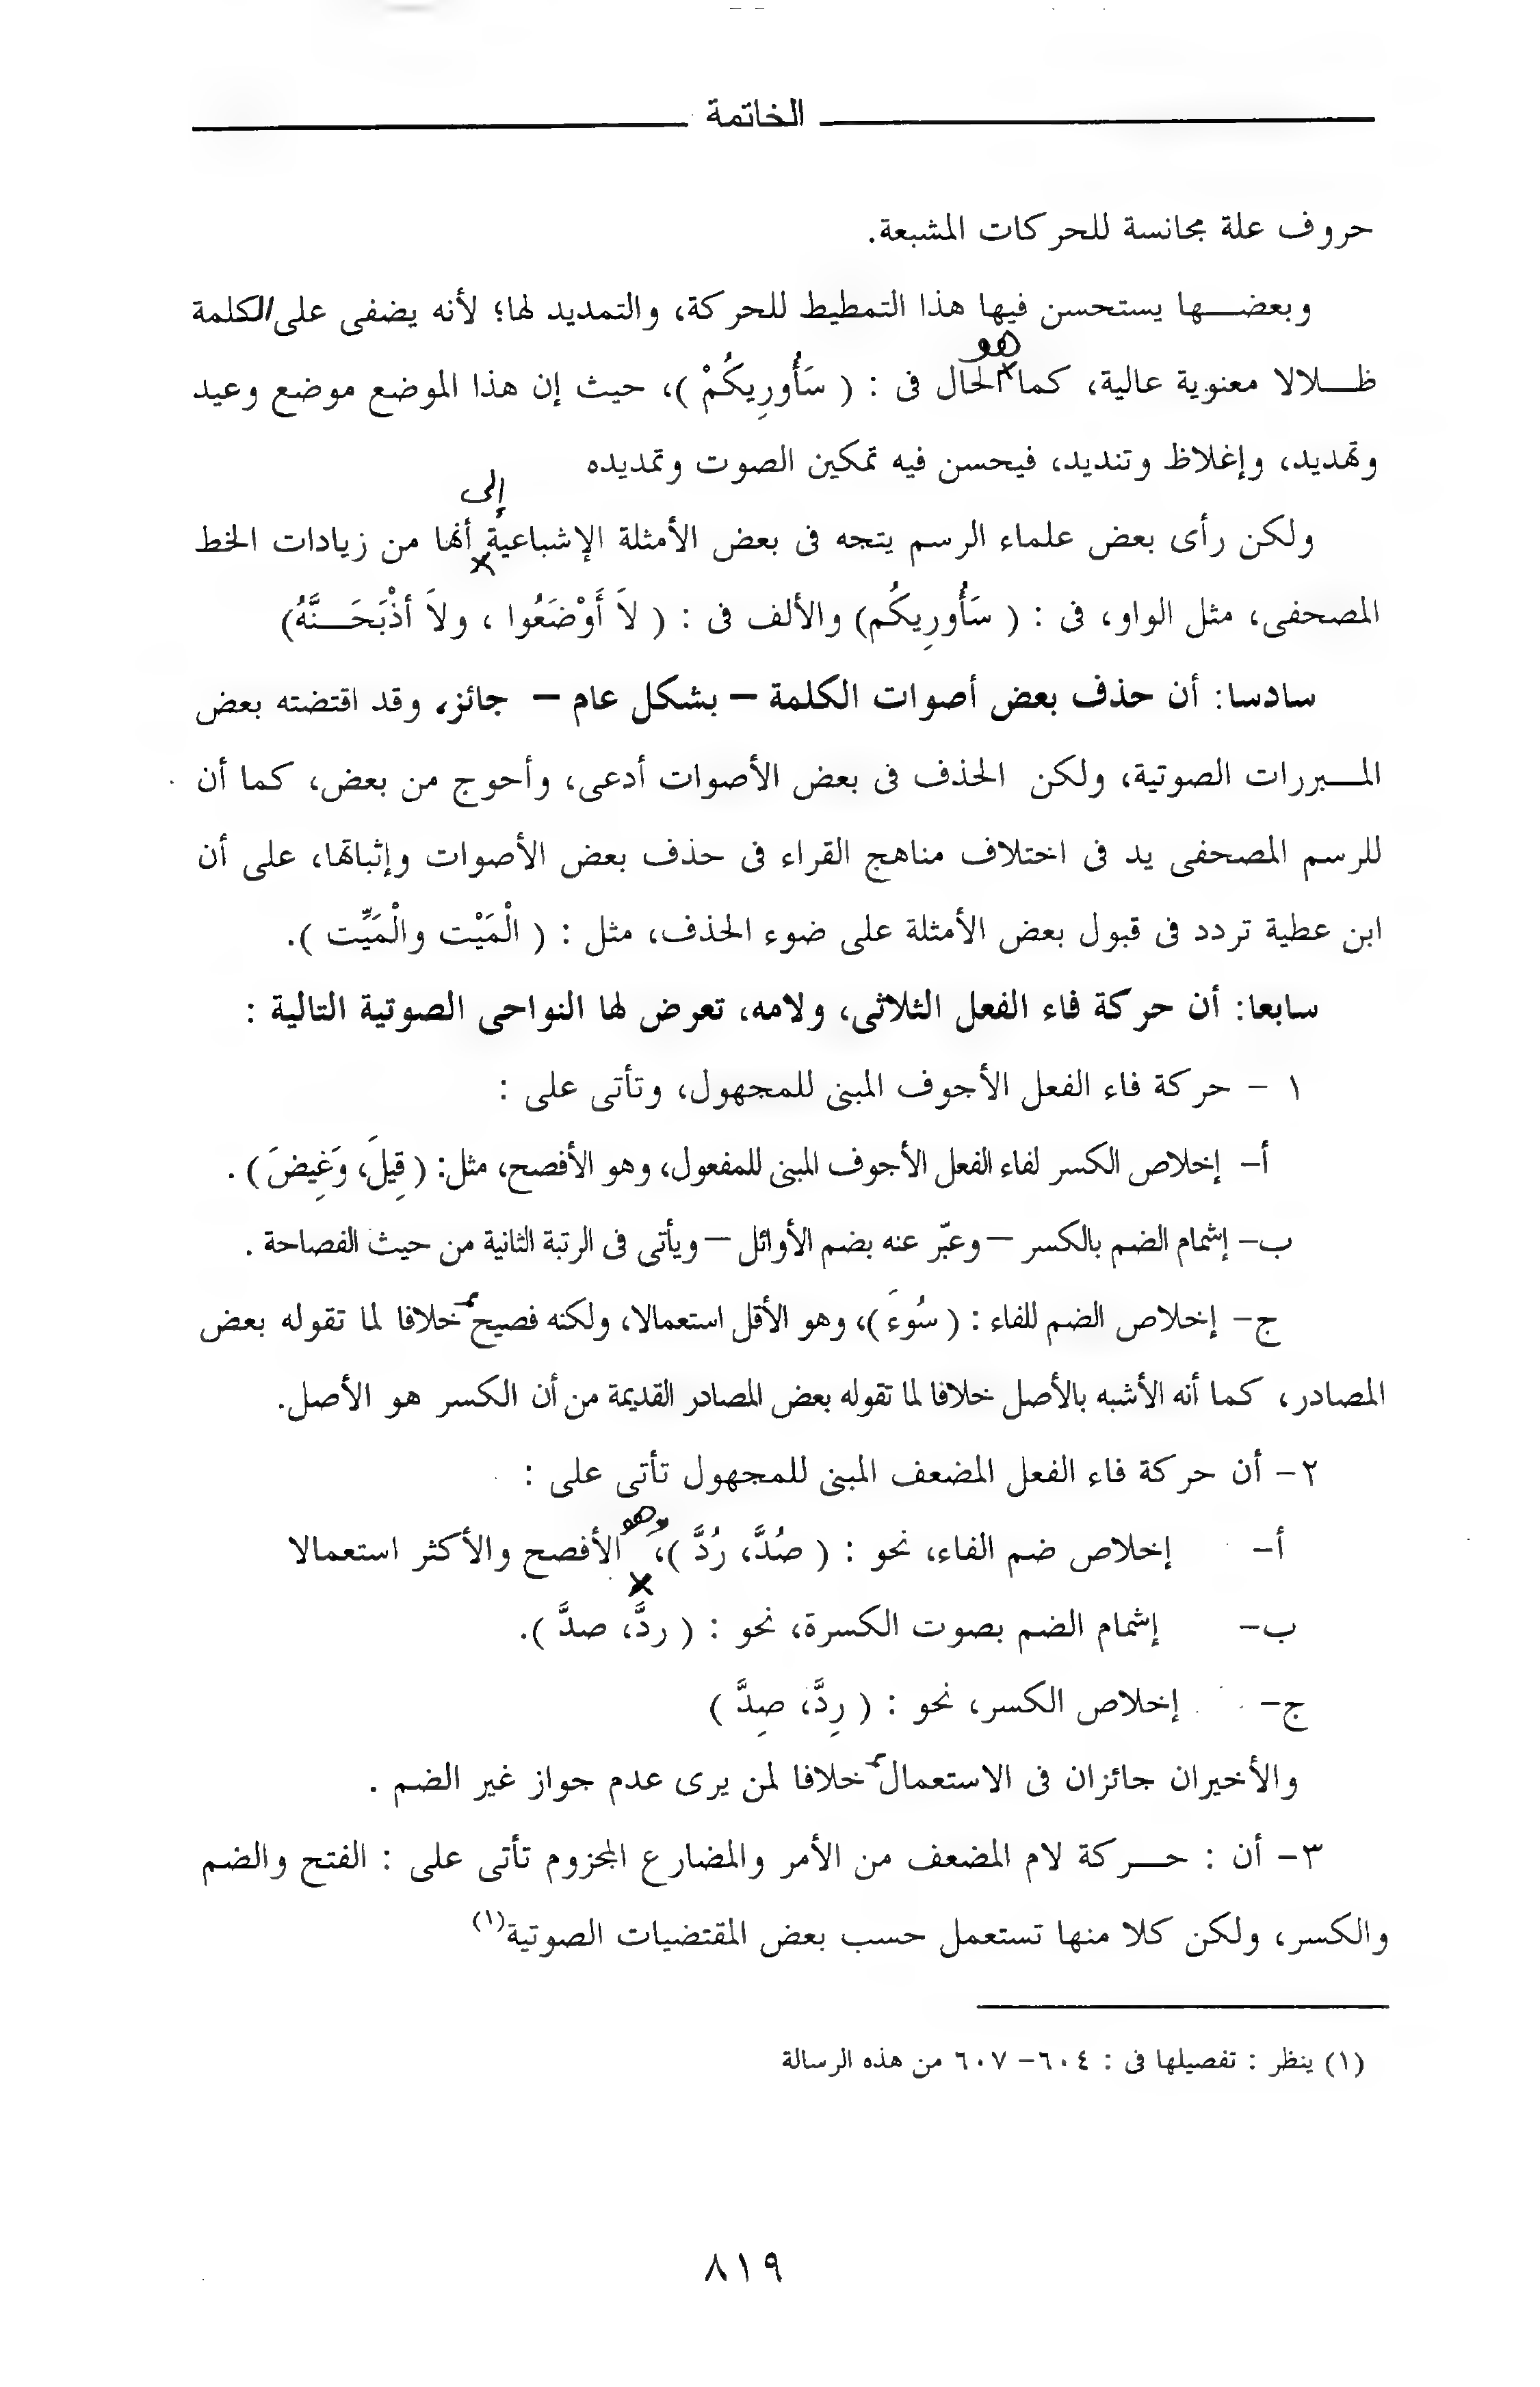 الخاتمة
حروف علة مجانسة للحركات المشبعة.
وبعضـــها يستحسن فيها هذا التمطيط للحركة، والتمديد لها؛ لأنه يضفى على الكلمة
هو
ظـــلالا معنوية عالية، كما الحال فى : ( سَأُورِيكُمْ )، حيث إن هذا الموضع موضع وعيد
وتهديد، وإغلاظ وتنديد، فيحسن فيه تمكين الصوت وتمديده
إلى
ولكن رأى بعض علماء الرسم يتجه فى بعض الأمثلة الإشباعية أنها من زيادات الخط
المصحفى، مثل الواو، فى : ( سَأُورِيكُم) والألف فى : ( لاَ أَوْضَعُوا ، ولاَ أذْبَحَـــنَّهُ)
سادسا: أن حذف بعض أصوات الكلمة – بشكل عام – جائز، وقد اقتضته بعض
المـــبررات الصوتية، ولكن الحذف فى بعض الأصوات أدعى، وأحوج من بعض، كما أن
للرسم المصحفى يد فى اختلاف مناهج القراء فى حذف بعض الأصوات وإثباتها، على أن
ابن عطية تردد فى قبول بعض الأمثلة على ضوء الحذف، مثل : ( الْمَيْت والْمَيِّت ).
سابعا: أن حركة فاء الفعل الثلاثى، ولامه، تعرض لها النواحى الصوتية التالية :
١ – حركة فاء الفعل الأجوف المبنى للمجهول، وتأتى على :
أ– إخلاص الكسر لفاء الفعل الأجوف المبنى للمفعول، وهو الأفصح، مثل: ( قِيلَ، وَغِيضَ ) .
ب– إشمام الضم بالكسر – وعبّر عنه بضم الأوائل – ويأتى فى الرتبة الثانية من حيث الفصاحة .
ج– إخلاص الضم للفاء : ( سُوءَ )، وهو الأقل استعمالا، ولكنه فصيح خلافا لما تقوله بعض
المصادر، كما أنه الأشبه بالأصل خلافا لما تقوله بعض المصادر القديمة من أن الكسر هو الأصل.
٢– أن حركة فاء الفعل المضعف المبنى للمجهول تأتى على :
وهو
أ– إخلاص ضم الفاء، نحو : ( صُدَّ، رُدَّ )، الأفصح والأكثر استعمالا
ب– إشمام الضم بصوت الكسرة، نحو : ( ردَّ، صدَّ ).
ج– إخلاص الكسر، نحو : ( رِدَّ، صِدَّ )
والأخيران جائزان فى الاستعمال خلافا لمن يرى عدم جواز غير الضم .
٣– أن : حـــركة لام المضعف من الأمر والمضارع المجزوم تأتى على : الفتح والضم
والكسر، ولكن كلا منها تستعمل حسب بعض المقتضيات الصوتية(١)
(١) ينظر : تفصيلها فى : ٦٠٤– ٦٠٧ من هذه الرسالة
٨١٩